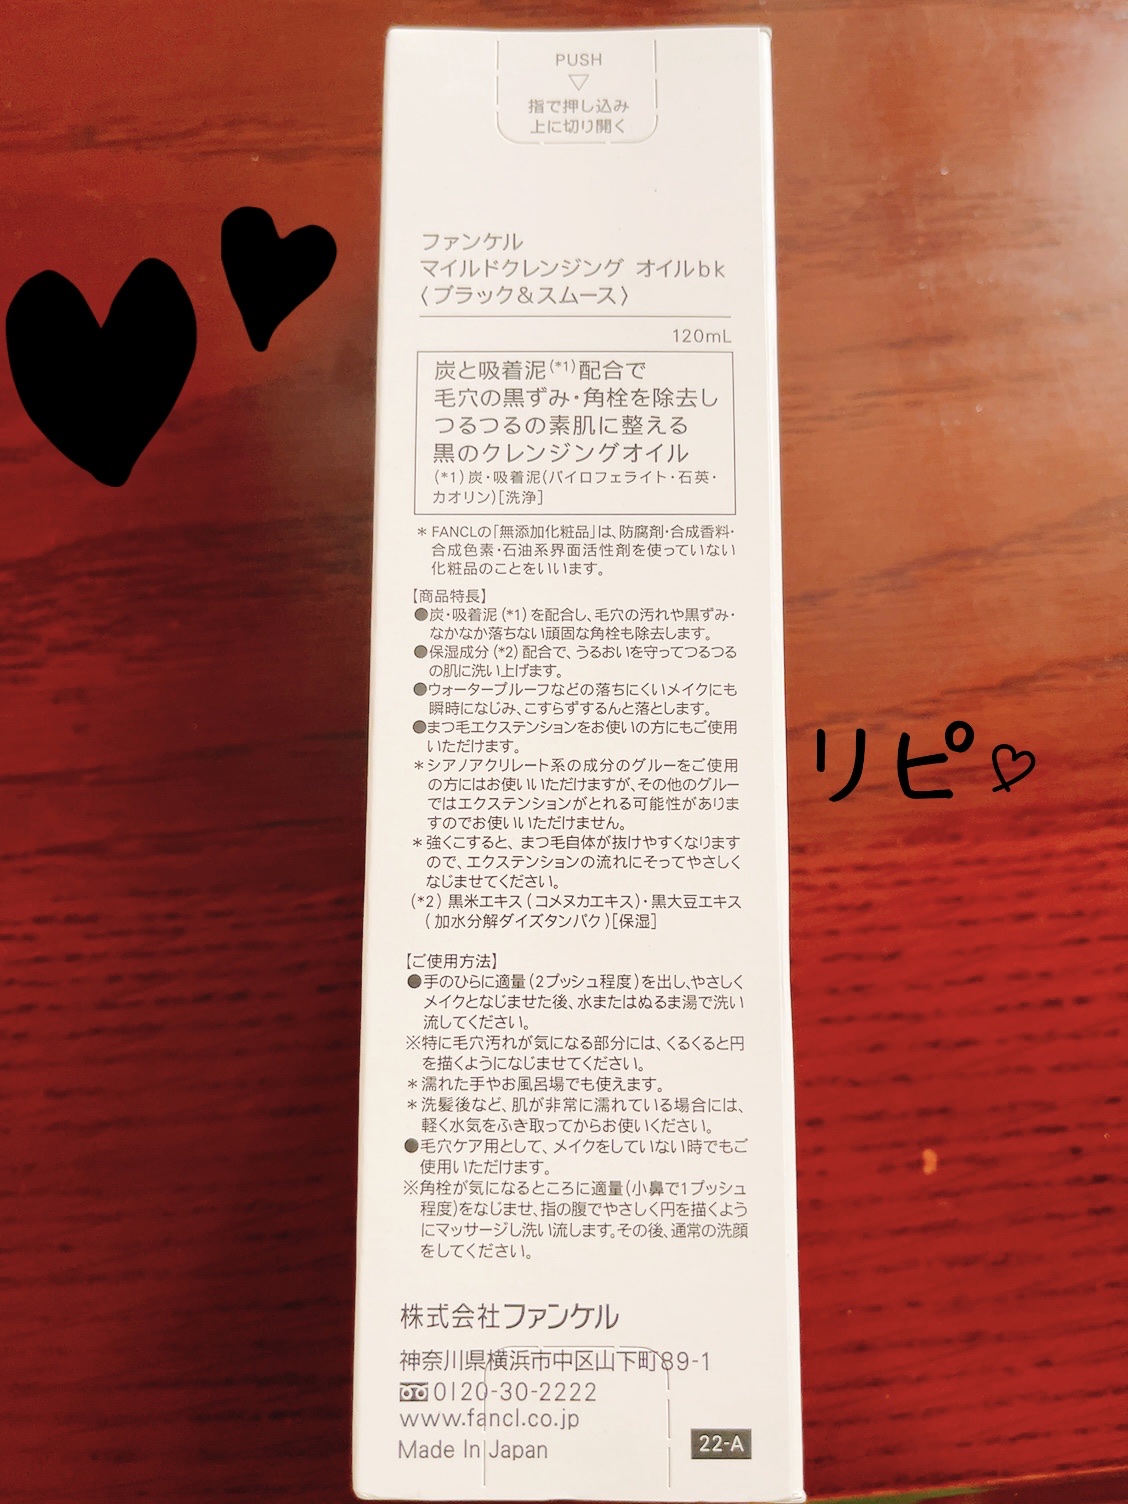 PUSH
▽
指で押し込み
上に切り開く
ファンケル
マイルドクレンジング オイルbk
〈ブラック&スムース〉
120mL
炭と吸着泥(*1)配合で
毛穴の黒ずみ・角栓を除去し
つるつるの素肌に整える
黒のクレンジングオイル
(*1)炭・吸着泥(パイロフェライト・石英・
カオリン)[洗浄]
＊FANCLの「無添加化粧品」は、防腐剤・合成香料・
合成色素・石油系界面活性剤を使っていない
化粧品のことをいいます。
【商品特長】
●炭・吸着泥(*1)を配合し、毛穴の汚れや黒ずみ・
なかなか落ちない頑固な角栓も除去します。
●保湿成分(*2)配合で、うるおいを守ってつるつる
の肌に洗い上げます。
●ウォータープルーフなどの落ちにくいメイクにも
瞬時になじみ、こすらずするんと落とします。
●まつ毛エクステンションをお使いの方にもご使用
いただけます。
＊シアノアクリレート系の成分のグルーをご使用
の方にはお使いいただけますが、その他のグルー
ではエクステンションがとれる可能性がありま
すのでお使いいただけません。
＊強くこすると、まつ毛自体が抜けやすくなります
ので、エクステンションの流れにそってやさしく
なじませてください。
(*2)黒米エキス(コメヌカエキス)・黒大豆エキス
(加水分解ダイズタンパク)[保湿]
【ご使用方法】
●手のひらに適量(2プッシュ程度)を出し、やさしく
メイクとなじませた後、水またはぬるま湯で洗い
流してください。
※特に毛穴汚れが気になる部分には、くるくると円
を描くようになじませてください。
＊濡れた手やお風呂場でも使えます。
＊洗髪後など、肌が非常に濡れている場合には、
軽く水気をふき取ってからお使いください。
●毛穴ケア用として、メイクをしていない時でもご
使用いただけます。
※角栓が気になるところに適量(小鼻で1プッシュ
程度)をなじませ、指の腹でやさしく円を描くよう
にマッサージし洗い流します。その後、通常の洗顔
をしてください。
リピ♡
株式会社ファンケル
神奈川県横浜市中区山下町89-1
0120-30-2222
www.fancl.co.jp
Made In Japan
22-A